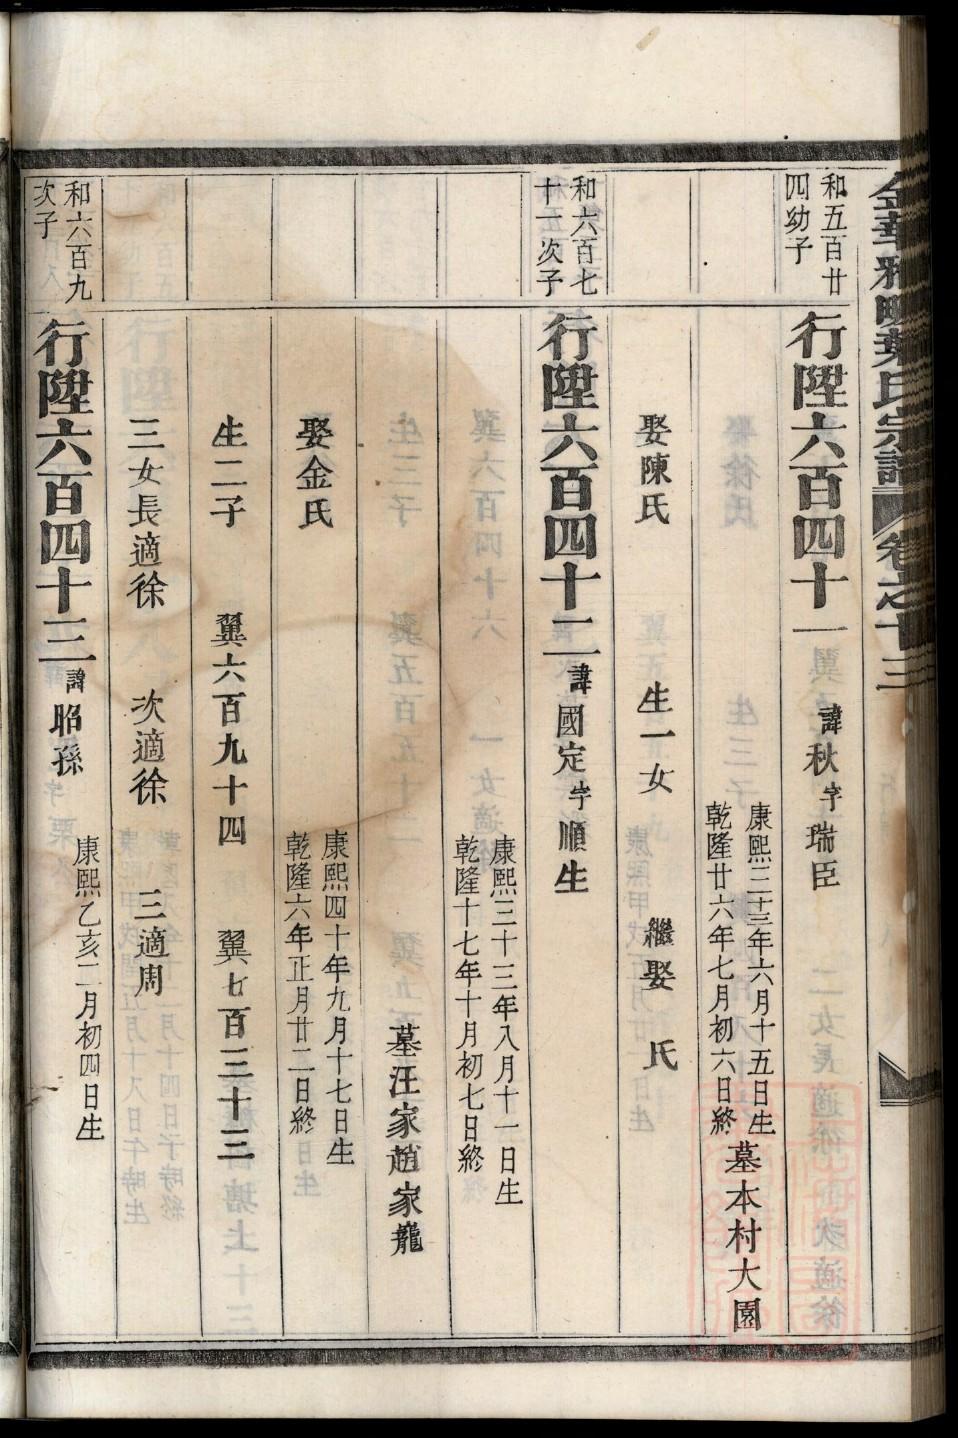 和五百廿
四幼子
行陞六百四十一
諱秋字瑞臣
康熙三十三年六月十五日生
乾隆廿六年七月初六日終
墓本村大園
娶陳氏
生一女
繼娶 氏
和六百七
十一次子
行陞六百四十二
諱國定字順生
康熙三十三年八月十一日生
乾隆十七年十月初七日終
墓汪家趙家龍
娶金氏
康熙四十年九月十七日生
乾隆六年正月廿二日終
生二子
翼六百九十四
翼七百三十三
三女長適徐
次適徐
三適周
和六百九
次子
行陞六百四十三
諱昭孫
康熙乙亥二月初四日生